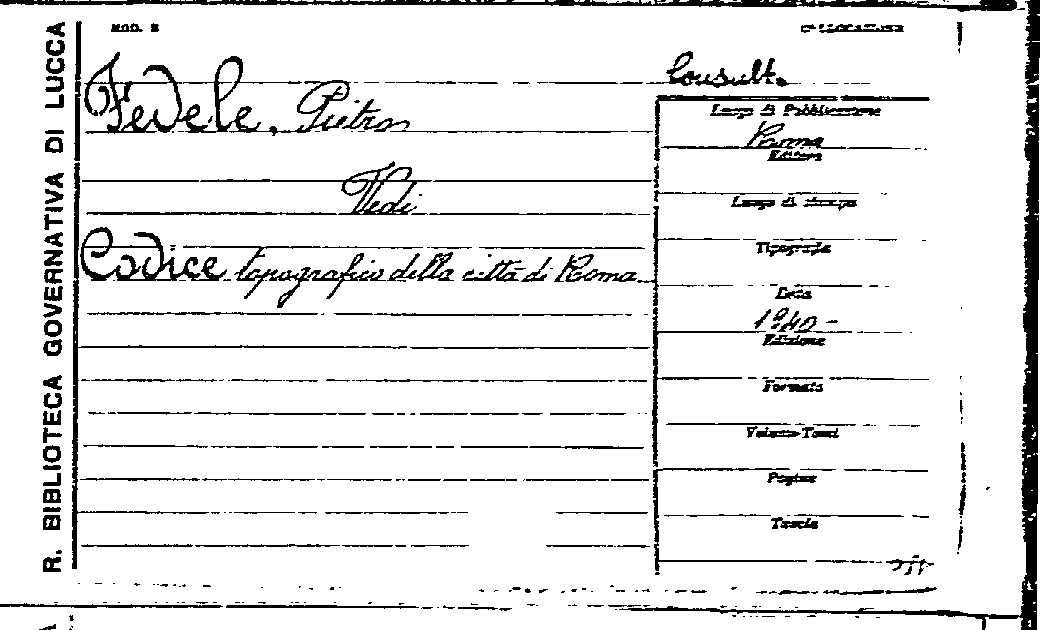 R. BIBLIOTECA GOVERNATIVA DI LUCCA
MOD. 2
COLLOCAZIONE
Consult.
Fedele, Pietro
Vedi
Codice topografico della città di Roma
Luogo di Pubblicazione
Roma
Editore
Luogo di stampa
Tipografia
Data
1940-
Edizione
Formato
Volume-Tomi
Pagine
Tavole